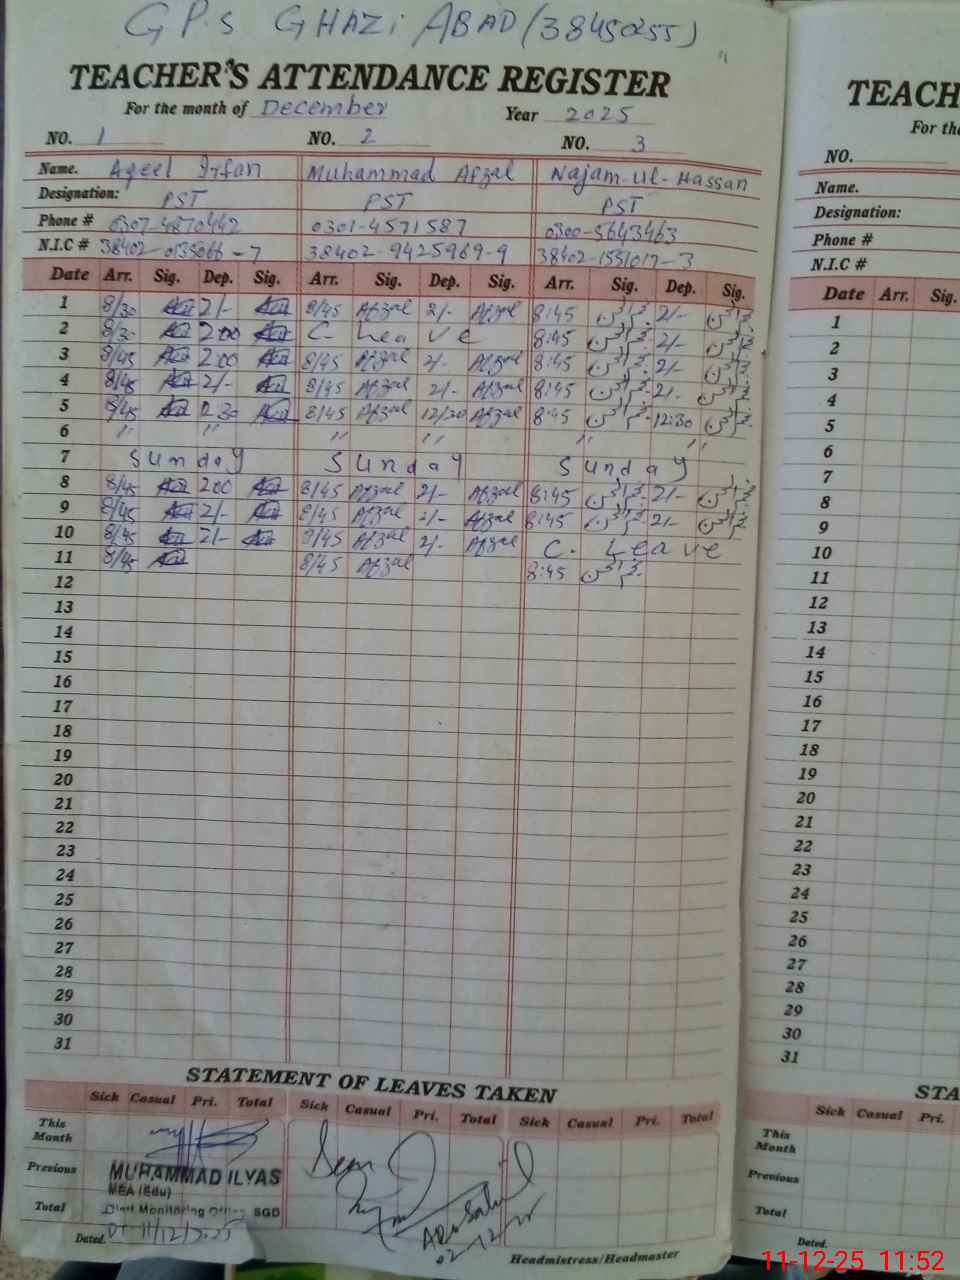 G P.S GHAZi ABAD (38450255)
TEACHER'S ATTENDANCE REGISTER
For the month of December Year 2025
NO. 1 NO. 2 NO. 3
Name. Aqeel Irfan Muhammad Afzal Najam-ul-Hassan
Designation: PST PST PST
Phone # 0307-4870442 0301-4571587 0300-5643463
N.I.C # 38402-0135066-7 38402-9425969-9 38402-1551017-3
Date Arr. Sig. Dep. Sig. Arr. Sig. Dep. Sig. Arr. Sig. Dep. Sig.
1 8/30 2/- 8/45 Afzal 2/- Afzal 8:45 2/-
2 8/30 200 C- Leave 8:45 2/-
3 8/45 200 8/45 Afzal 2/- Afzal 8:45 2/-
4 8/45 2/- 8/45 Afzal 2/- Afzal 8:45 2/-
5 8/45 8/45 Afzal 12/30 Afzal 8:45 12:30
6 " " " " " "
7 Sunday Sunday Sunday
8 8/45 200 8/45 Afzal 2/- Afzal 8:45 2/-
9 8/45 2/- 8/45 Afzal 2/- Afzal 8:45 2/-
10 8/45 2/- 8/45 Afzal 2/- Afzal C. Leave
11 8/45 8/45 Afzal 8:45
12
13
14
15
16
17
18
19
20
21
22
23
24
25
26
27
28
29
30
31
STATEMENT OF LEAVES TAKEN
Sick Casual Pri. Total Sick Casual Pri. Total Sick Casual Pri. Total
This Month
Previous
Total
MUHAMMAD ILYAS
MEA (Edu)
Distt Monitoring Office SGD
Dated. Dt 11/12/2025
Seen
02-12-25
Headmistress/Headmaster
TEACH
For the
NO.
Name.
Designation:
Phone #
N.I.C #
Date Arr. Sig.
1
2
3
4
5
6
7
8
9
10
11
12
13
14
15
16
17
18
19
20
21
22
23
24
25
26
27
28
29
30
31
STA
Sick Casual Pri.
This Month
Previous
Total
Dated.
11-12-25 11:52